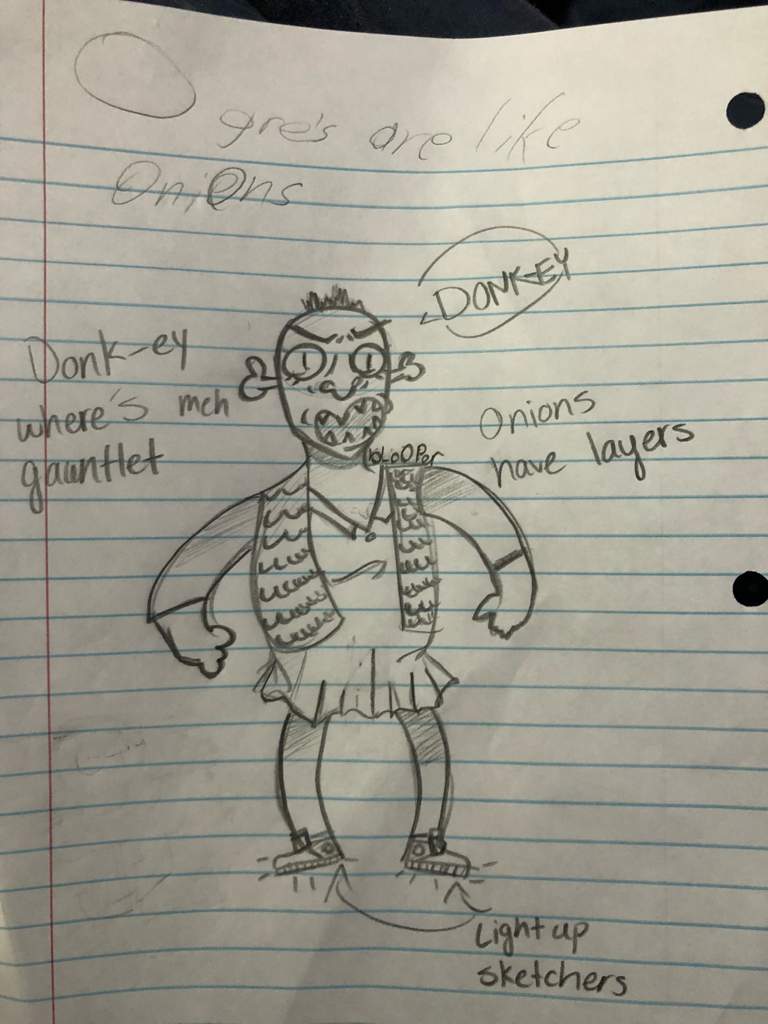 Ogre's are like
Onions
DONK-EY
Donk-ey
where's meh
gauntlet
Onions
have layers
Light up
sketchers